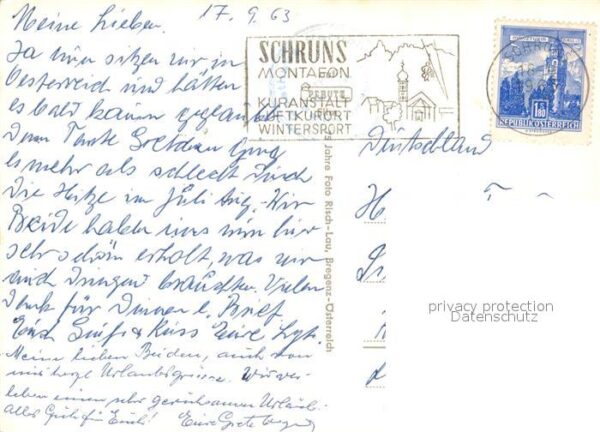 17.9.63
Meine Lieben.
Ja nun sitzen wir in
Oesterreich und hätten
es bald kaum geglaubt
Denn Tante Gretchen ging
es mehr als schlecht durch
die Hitze im Juli Aug. Wir
Beide haben uns nun hier
sehr schön erholt, was wir
auch dringend brauchten. Vielen
Dank für Deinen l. Brief
Gruß & Kuss Eure
Meine lieben Beiden, auch von
mir herzl Urlaubsgrüsse. Wir ver-
leben einen sehr geruhsamen Urlaub.
Alles Gute für Euch! Eure Grete
SCHRUNS
MONTAFON
KURANSTALT
LUFTKURORT
WINTERSPORT
1.80
REPUBLIK ÖSTERREICH
Deutschland
Jahre Foto Risch-Lau, Bregenz-Österreich
privacy protection
Datenschutz